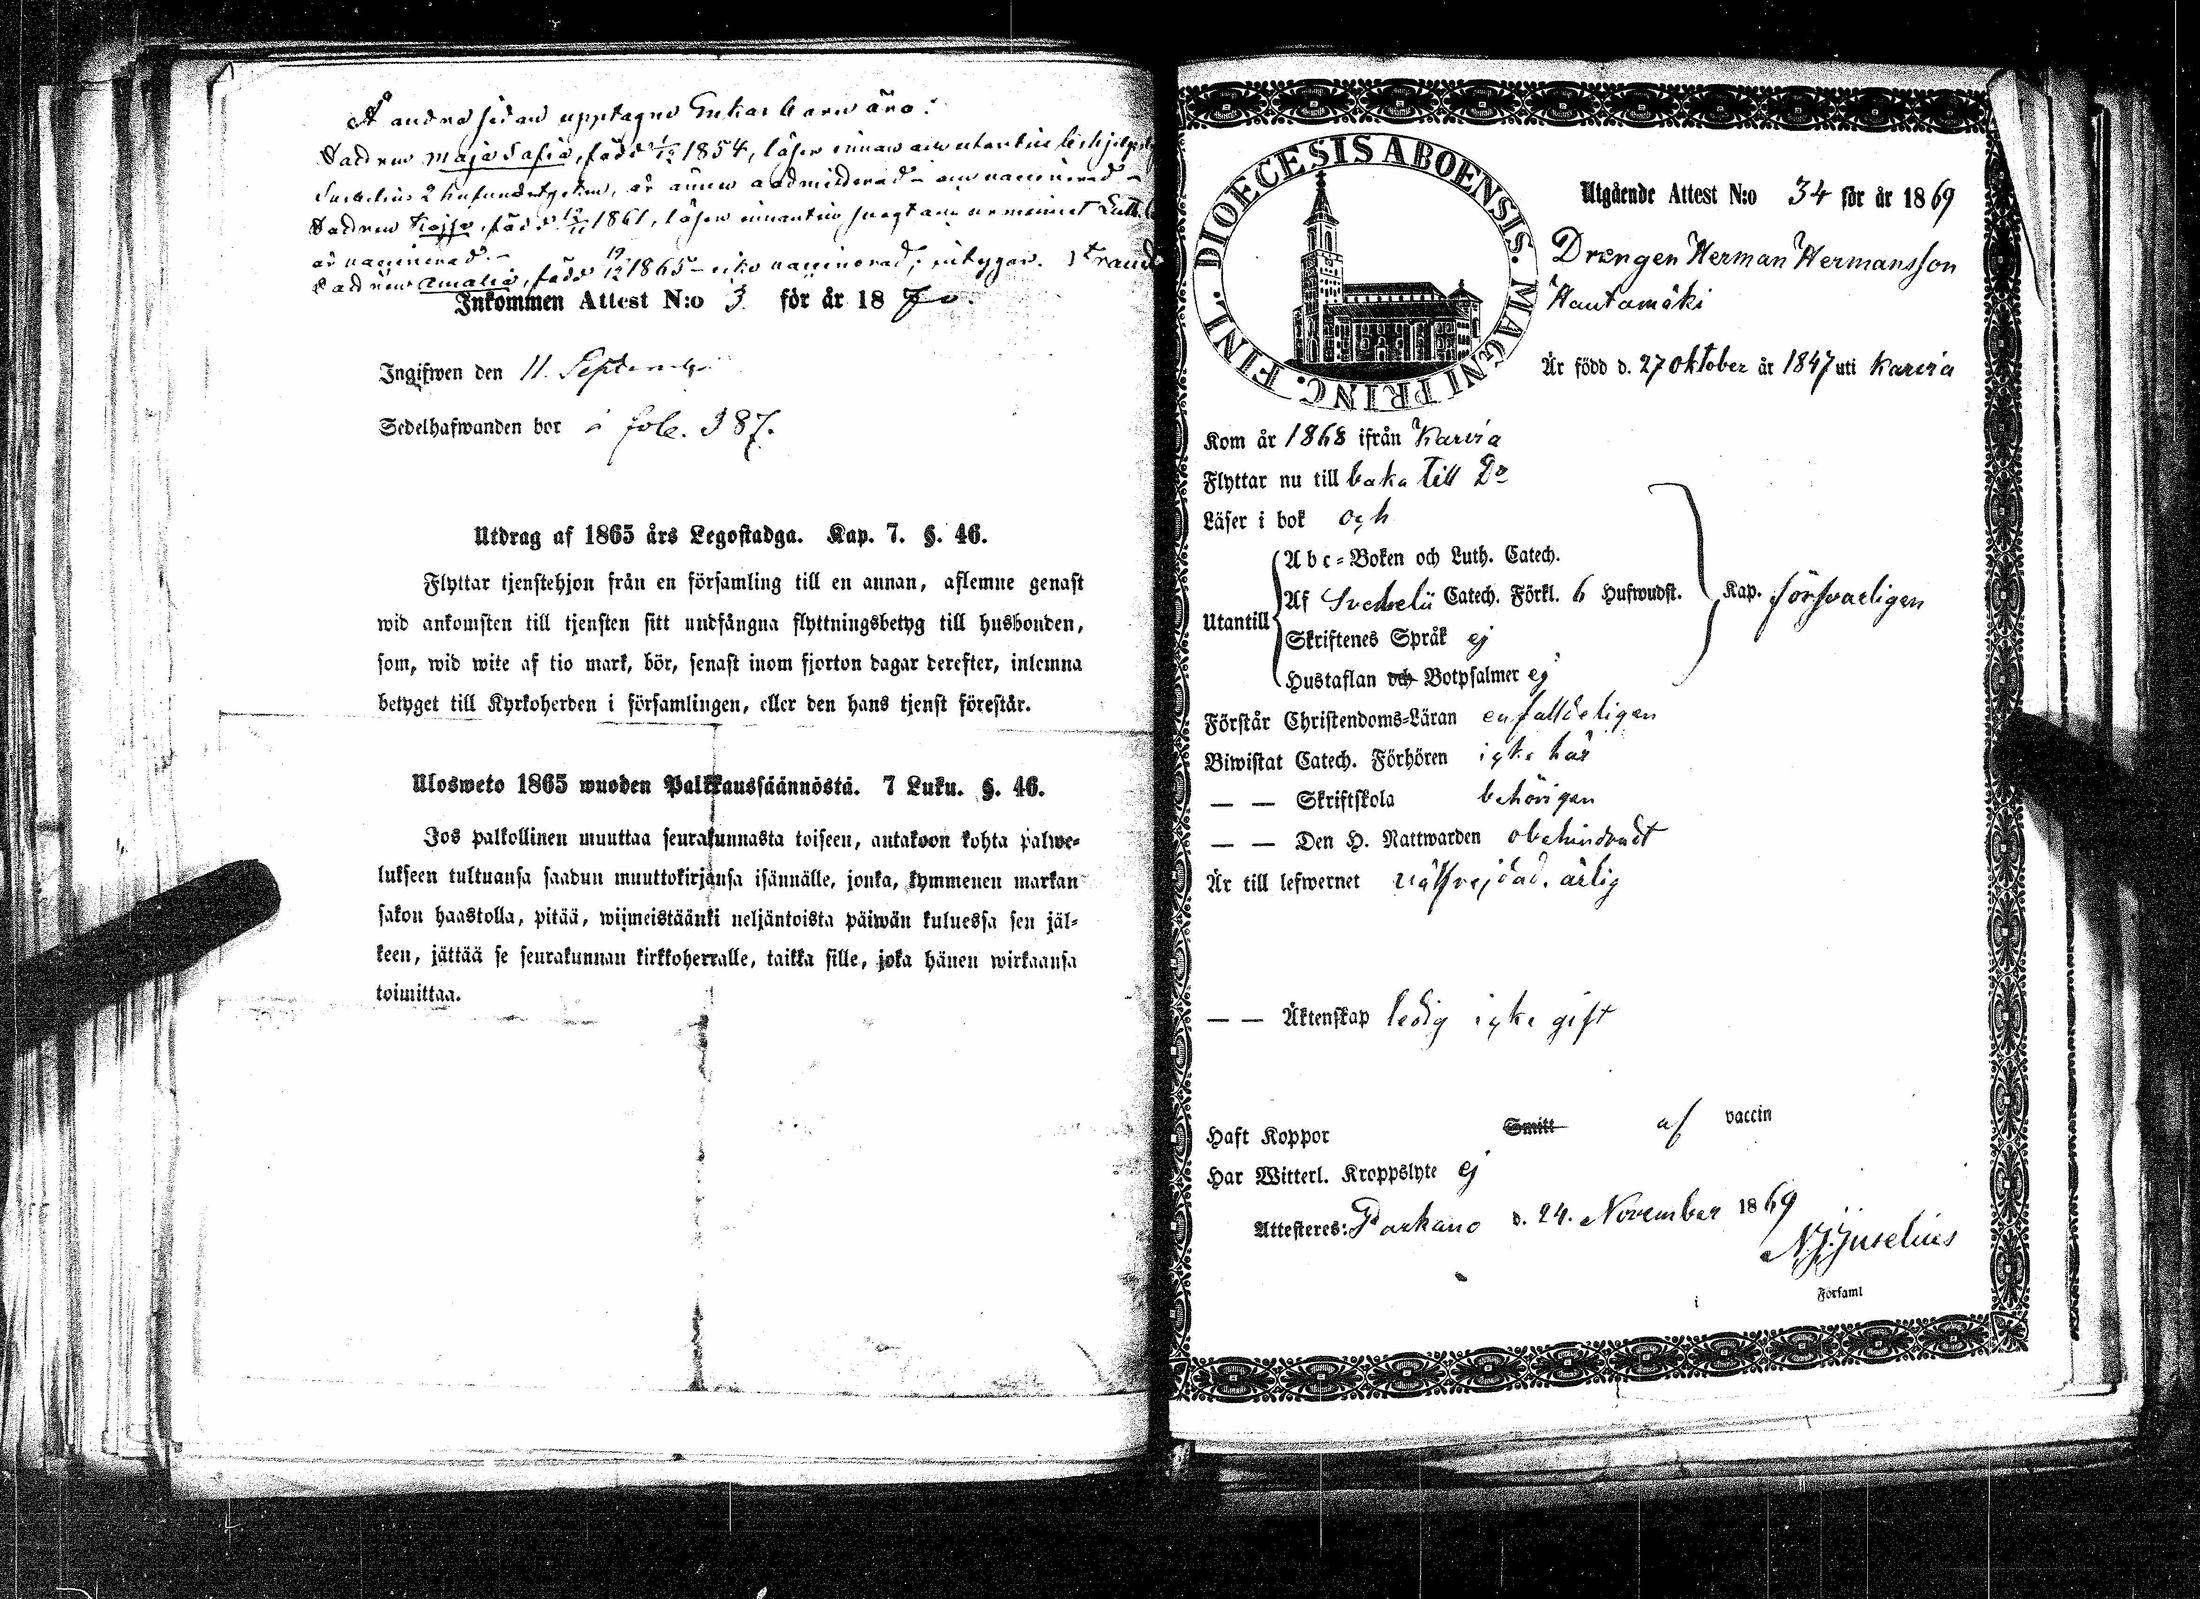 Å andra sidan upptagne Enkas barn äro:
dottren Maja Safia, född 1/12 1854, läser innan och utantill behjelpligt
Svebelius 2 hufvudstycken, är ännu oadmitterad - och vaccinerad -
dottren Kajsa, född 12/11 1861, läser innantill svagt
är vaccinerad -
dottren Amalia, född 19/12 1865 - icke vaccinerad; intygar.
Inkommen Attest N:o 3. för år 1870.
Ingifwen den 11. September
Sedelhafwanden bor i fol. 387.
Utdrag af 1865 års Legostadga. Kap. 7. §. 46.
Flyttar tjenstehjon från en församling till en annan, aflemne genast
wid ankomsten till tjensten sitt undfångna flyttningsbetyg till husbonden,
som, wid wite af tio mark, bör, senast inom fjorton dagar derefter, inlemna
betyget till Kyrkoherden i församlingen, eller den hans tjenst förestår.
Ulosweto 1865 wuoden Palkkaussäännöstä. 7 Luku. §. 46.
Jos palkollinen muuttaa seurakunnasta toiseen, antakoon kohta palwe-
lukseen tultuansa saadun muuttokirjansa isännälle, jonka, kymmenen markan
sakon haastolla, pitää, wiimeistäänki neljäntoista päiwän kuluessa sen jäl-
keen, jättää se seurakunnan kirkkoherralle, taikka sille, joka hänen wirkaansa
toimittaa.
DIOECESIS ABOENSIS. MAGNI PRINC. FINL.
Utgående Attest N:o 34 för år 1869
Drengen Herman Hermansson
Hautamäki
Är född d. 27 oktober år 1847 uti Karvia
Kom år 1868 ifrån Karvia
Flyttar nu till baka till Do
Läser i bok och
Utantill
Abc-Boken och Luth. Catech.
Af Svebelii Catech. Förkl. 6 Hufwudst. Kap. försvarligen
Skriftenes Språk ej
Hustaflan och Botpsalmer ej
Förstår Christendoms-Läran enfalldeligen
Biwistat Catech. Förhören icke här
— — Skriftskola behörigen
— — Den H. Nattwarden obehindradt
Är till lefwernet välfrejdad. ärlig
— — Äktenskap ledig icke gift
Haft Koppor Smitt af vaccin
Har Witterl. Kroppslyte ej
Attesteres: Parkano d. 24. November 1869
N.J. Juselius
i Församl